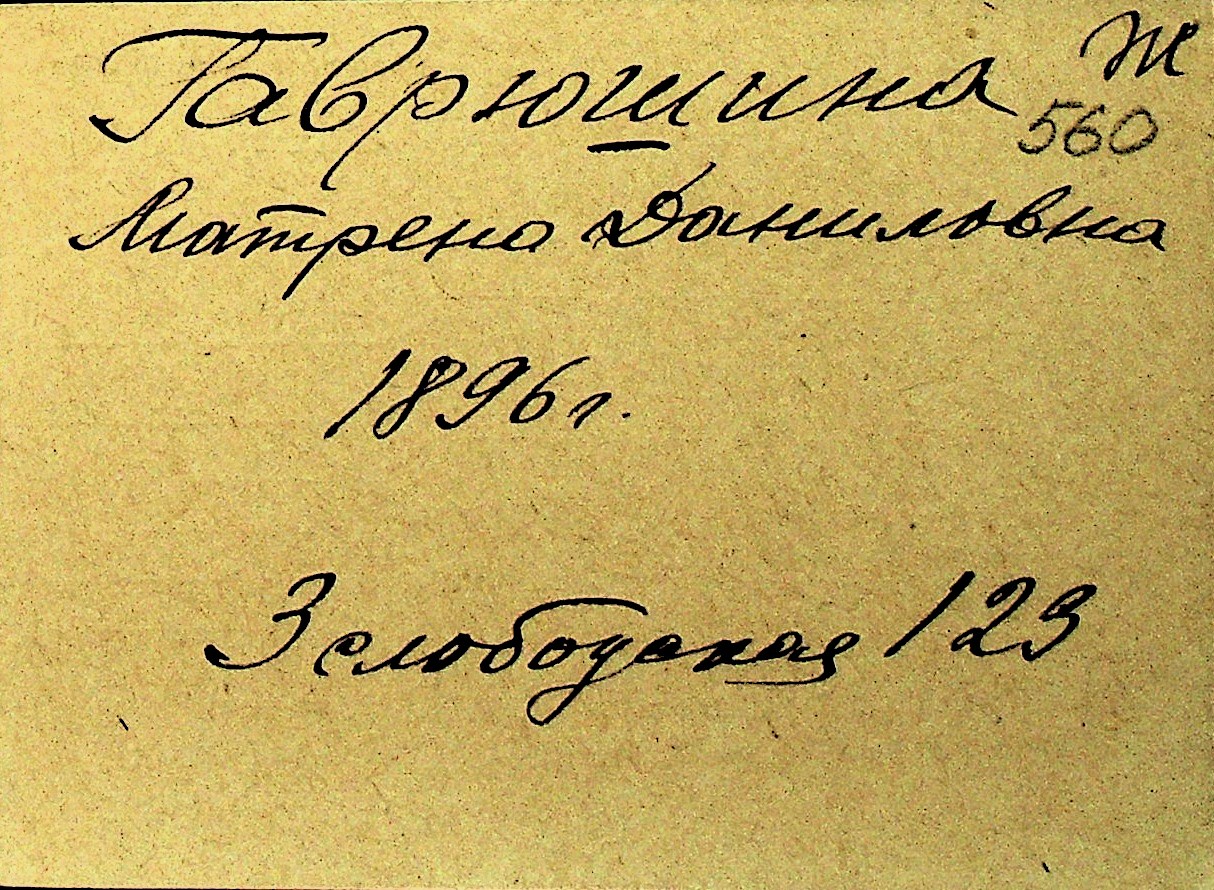 Гаврюшина Ж
560
Матрена Даниловна
1896г.
3 слободская 123